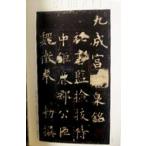 九成宮醴泉銘
秘書監檢校侍
中鉅鹿郡公臣
魏徵奉 勅撰